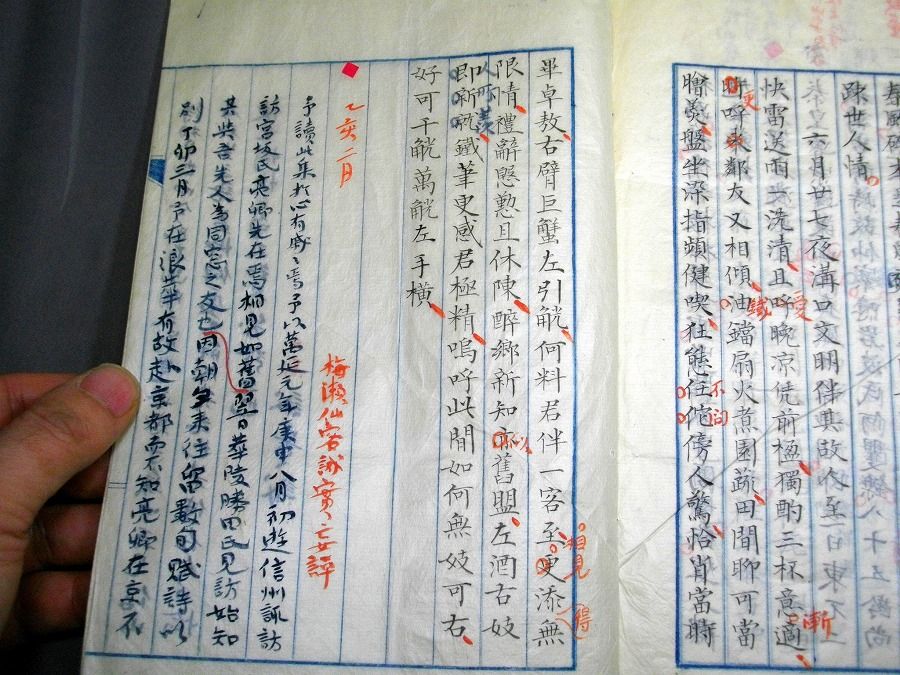 疎世人情
六月廿七夜溝口文明伴其故人至一日東不
快雷送雨天洗清且呼晚凉凭前楹獨酌三杯意適
漸
時呼我鄰友又相傾油鐺扇火煮園蔬田間聊可當
更
盤坐染指頻健喫狂態任佗傍人驚恰肖當時
不問
畢卓敖右臂巨蟹左引觥何料君伴一客至更添無
相見
得
限情禮辭慇懃且休陳醉鄉新知亦舊盟左酒右妓
以
即新就鐵筆更感君極精嗚呼此間如何無妓可右
好可千觥萬觥左手橫
乙亥二月
梅瀬仙客誠實妄評
予讀此集於心有感々焉予以萬延元年庚申八月初遊信州諏訪
訪宮坂氏亮卿先在焉相見如舊翌日華陵勝田氏見訪始知
其與吾先人為同窓之友也因朝夕来往留數旬賦詩以
別丁卯三月予在浪華有故赴京都而不知亮卿在京不